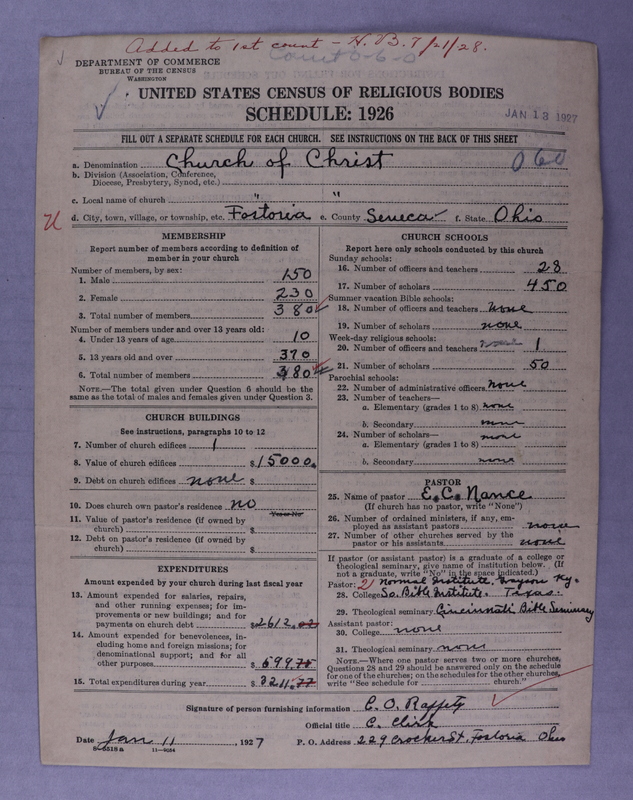 Added to 1st count - H.B. 7/21/28.
DEPARTMENT OF COMMERCE
BUREAU OF THE CENSUS
WASHINGTON
UNITED STATES CENSUS OF RELIGIOUS BODIES
SCHEDULE: 1926
JAN 13 1927
FILL OUT A SEPARATE SCHEDULE FOR EACH CHURCH. SEE INSTRUCTIONS ON THE BACK OF THIS SHEET
a. Denomination Church of Christ 060
b. Division (Association, Conference,
Diocese, Presbytery, Synod, etc.)
c. Local name of church " "
d. City, town, village, or township, etc. Fostoria e. County Seneca f. State Ohio
MEMBERSHIP
Report number of members according to definition of
member in your church
Number of members, by sex:
1. Male 150
2. Female 230
3. Total number of members 380
Number of members under and over 13 years old:
4. Under 13 years of age 10
5. 13 years old and over 370
6. Total number of members 380
NOTE.—The total given under Question 6 should be
same as the total of males and females given under Question 3.
CHURCH BUILDINGS
See instructions, paragraphs 10 to 12
7. Number of church edifices 1
8. Value of church edifices $15000.
9. Debt on church edifices none $
10. Does church own pastor's residence no
Yes or No
11. Value of pastor's residence (if owned by
church) $
12. Debt on pastor's residence (if owned by
church) $
EXPENDITURES
Amount expended by your church during last fiscal year
13. Amount expended for salaries, repairs,
and other running expenses; for im-
provements or new buildings; and for
payments on church debt $2612.
14. Amount expended for benevolences, in-
cluding home and foreign missions; for
denominational support; and for all
other purposes $599.
15. Total expenditures during year $3211.77
CHURCH SCHOOLS
Report here only schools conducted by this church
Sunday schools:
16. Number of officers and teachers 28
17. Number of scholars 450
Summer vacation Bible schools:
18. Number of officers and teachers none
19. Number of scholars none
Week-day religious schools:
20. Number of officers and teachers none 1
21. Number of scholars 50
Parochial schools:
22. Number of administrative officers none
23. Number of teachers—
a. Elementary (grades 1 to 8) none
b. Secondary none
24. Number of scholars—
a. Elementary (grades 1 to 8) none
b. Secondary none
PASTOR
25. Name of pastor E. C. Nance
(If church has no pastor, write "None")
26. Number of ordained ministers, if any, em-
ployed as assistant pastors none
27. Number of other churches served by the
pastor or his assistants none
If pastor (or assistant pastor) is a graduate of a college or
theological seminary, give name of institution below. (If
not a graduate, write "No" in the space indicated.)
Pastor: 21 Normal Institute, Grayson Ky.
28. College So. Bible Institute. Texas.
29. Theological seminary Cincinnati Bible Seminary
Assistant pastor:
30. College none
31. Theological seminary none
NOTE.—Where one pastor serves two or more churches,
Questions 28 and 29 should be answered only on the schedule
for one of the churches; on the schedules for the other churches,
write "See schedule for church."
Signature of person furnishing information E. O. Raffety
Official title C. Clerk
Date Jan 11, 1927 P. O. Address 229 Crocker St, Fostoria Ohio
8-5518a 11-9054